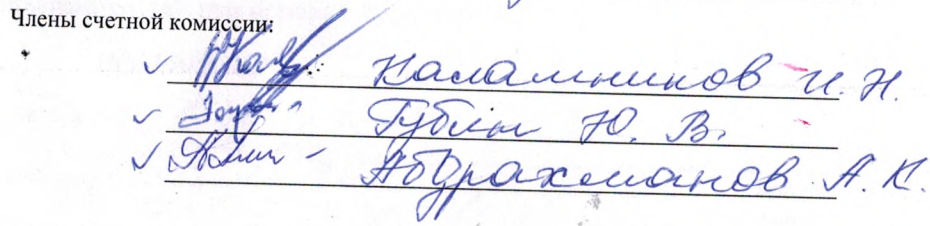 Члены счетной комиссии:
Каламников И. Н.
Ю. В.
Абдрахманов А. К.